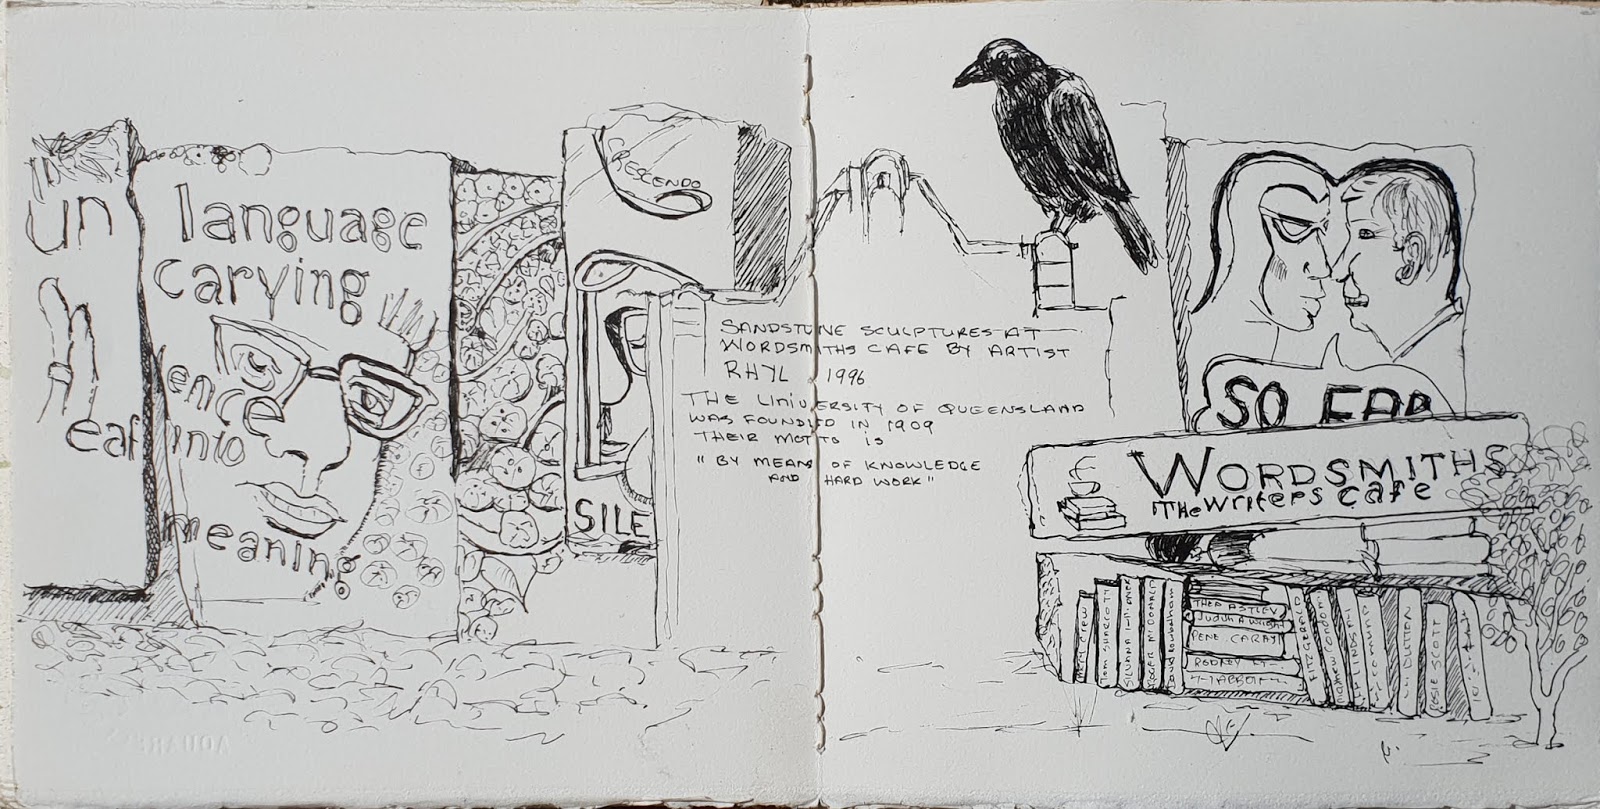 un
m
eaf
language
carying
ence
into
meaning
CRESCENDO
SILE
SANDSTONE SCULPTURES AT
WORDSMITHS CAFE BY ARTIST
RHYL 1996
THE UNIVERSITY OF QUEENSLAND
WAS FOUNDED IN 1909
THEIR MOTTO IS
"BY MEANS OF KNOWLEDGE
AND HARD WORK"
SO FAR
WORDSMITHS
The writers cafe
TOM SHAPCOTT
ROGER McDONALD
THEA ASTLEY
JUDITH WRIGHT
RODNEY
FITZGERALD
DUTTON
ROSIE SCOTT